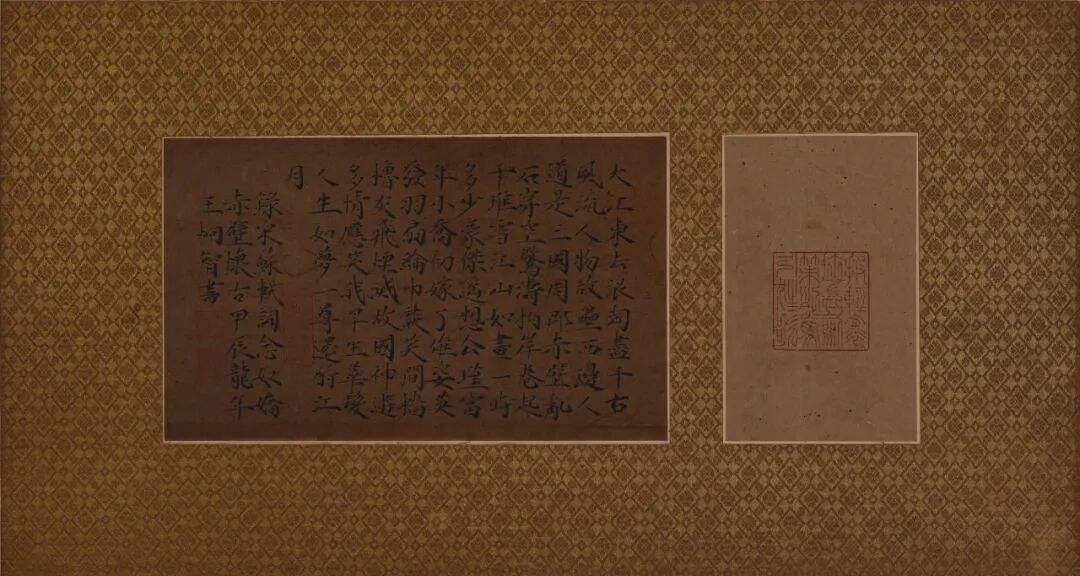 大江東去浪淘盡千古
風流人物故壘西邊人
道是三國周郎赤壁亂
石穿空驚濤拍岸卷起
千堆雪江山如畫一時
多少豪傑遙想公瑾當
年小喬初嫁了雄姿英
發羽扇綸巾談笑間檣
櫓灰飛煙滅故國神遊
多情應笑我早生華髮
人生如夢一尊還酹江
月
錄宋蘇軾詞念奴嬌
赤壁懷古甲辰龍年
王炯智書